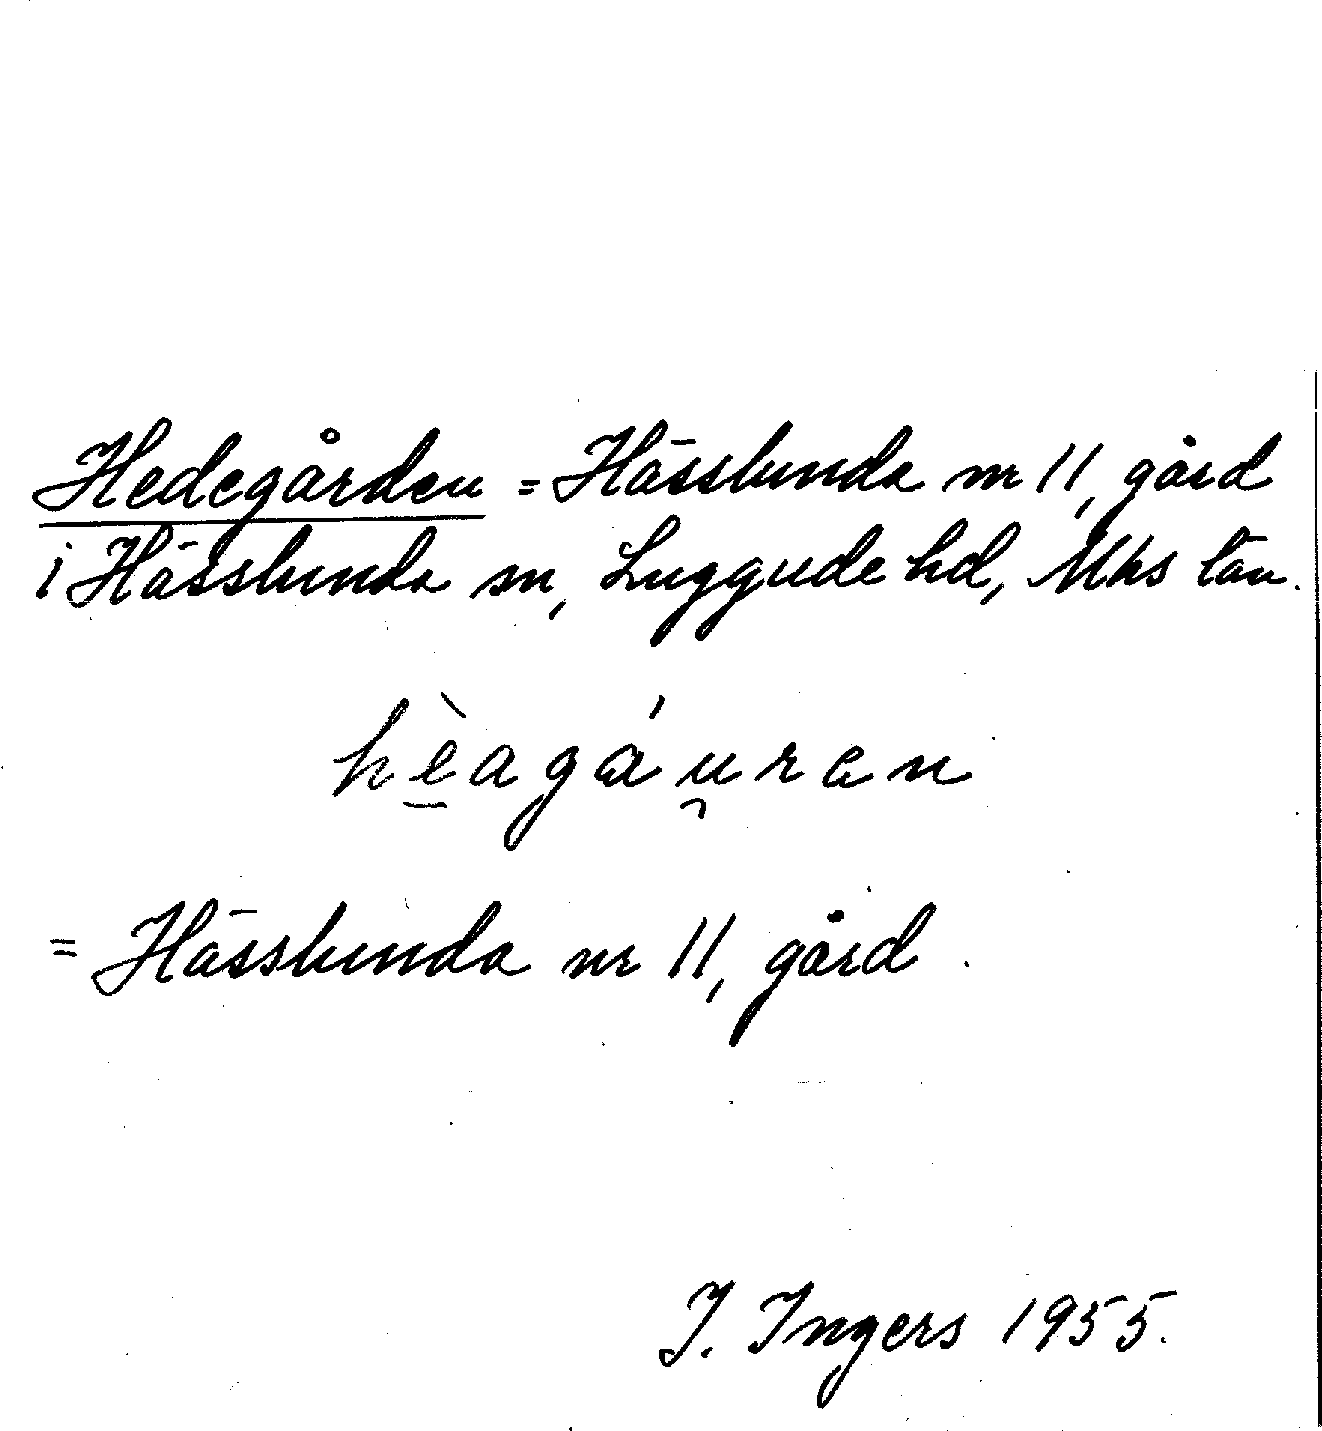 Hedegården = Hässlunda nr 11, gård
i Hässlunda sn, Luggude hd, Mhs län.
hè̠agáu̯ren
= Hässlunda nr 11, gård.
I. Ingers 1955.